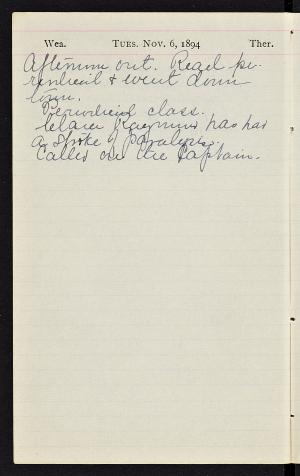 Wea. TUES. NOV. 6, 1894 Ther.
Afternoon out. Read pe-
riodical & went down
town.
Periodical class.
Clara has had
a stroke of paralysis.
Called on the Captain.